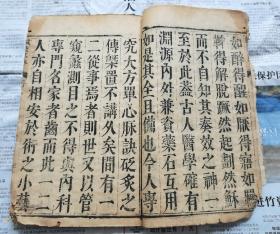 如醉得醒如得寤如
得解脫蹶然起劃然穌
而不自知其奏效之神一
至於此蓋古人醫學確有
淵源內外兼資藥石互用
如是其全且備也今人專
究大方單心脈訣砭灸之
傳槩置不講久矣間有一
二從事焉者則世又以管
窺蠡測目之不得與內科
專門名家者齒而此一二
人亦自相安於術之小